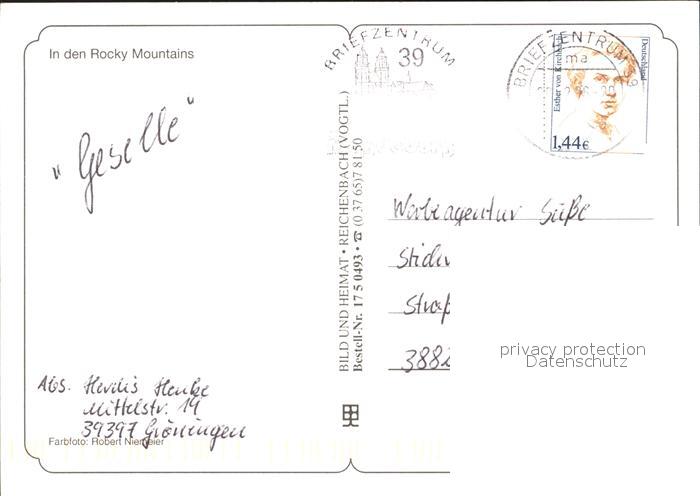 In den Rocky Mountains
BRIEFZENTRUM
39
BRIEFZENTRUM 39
ma
Deutschland
Esther von Kirchbach
1,44€
„Geselle"
BILD UND HEIMAT • REICHENBACH (VOGTL.)
Bestell-Nr. 17 5 0493 • ☎ (0 37 65) 7 81 50
Werbeagentur Süße
Straß
3882
privacy protection
Datenschutz
Abs. Henke
Mittelstr. 14
39397 Gröningen
Farbfoto: Robert Niemeier